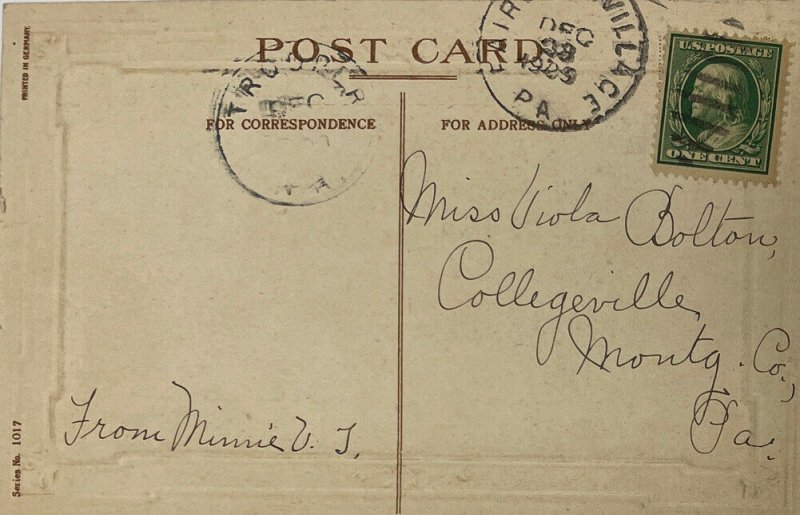 PRINTED IN GERMANY.
POST CARD.
FOR CORRESPONDENCE
FOR ADDRESS ONLY
VILLAGE
DEC
PA.
U.S. POSTAGE
ONE CENT
DEC
Miss Viola Bolton,
Collegeville,
Montg. Co.,
Pa.
From Minnie V. T.
Series No. 1017